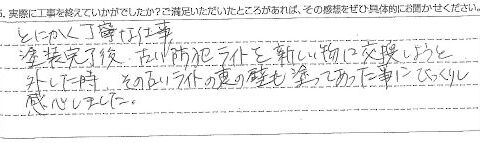 5. 実際に工事を終えていかがでしたか?ご満足いただいたところがあれば、その感想をぜひ具体的にお聞かせください。
とにかく丁寧な仕事
塗装完了後、古い防犯ライトを新しい物に交換しようと
外した時、その古いライトの裏の壁も塗ってあった事にびっくりし
感心しました。